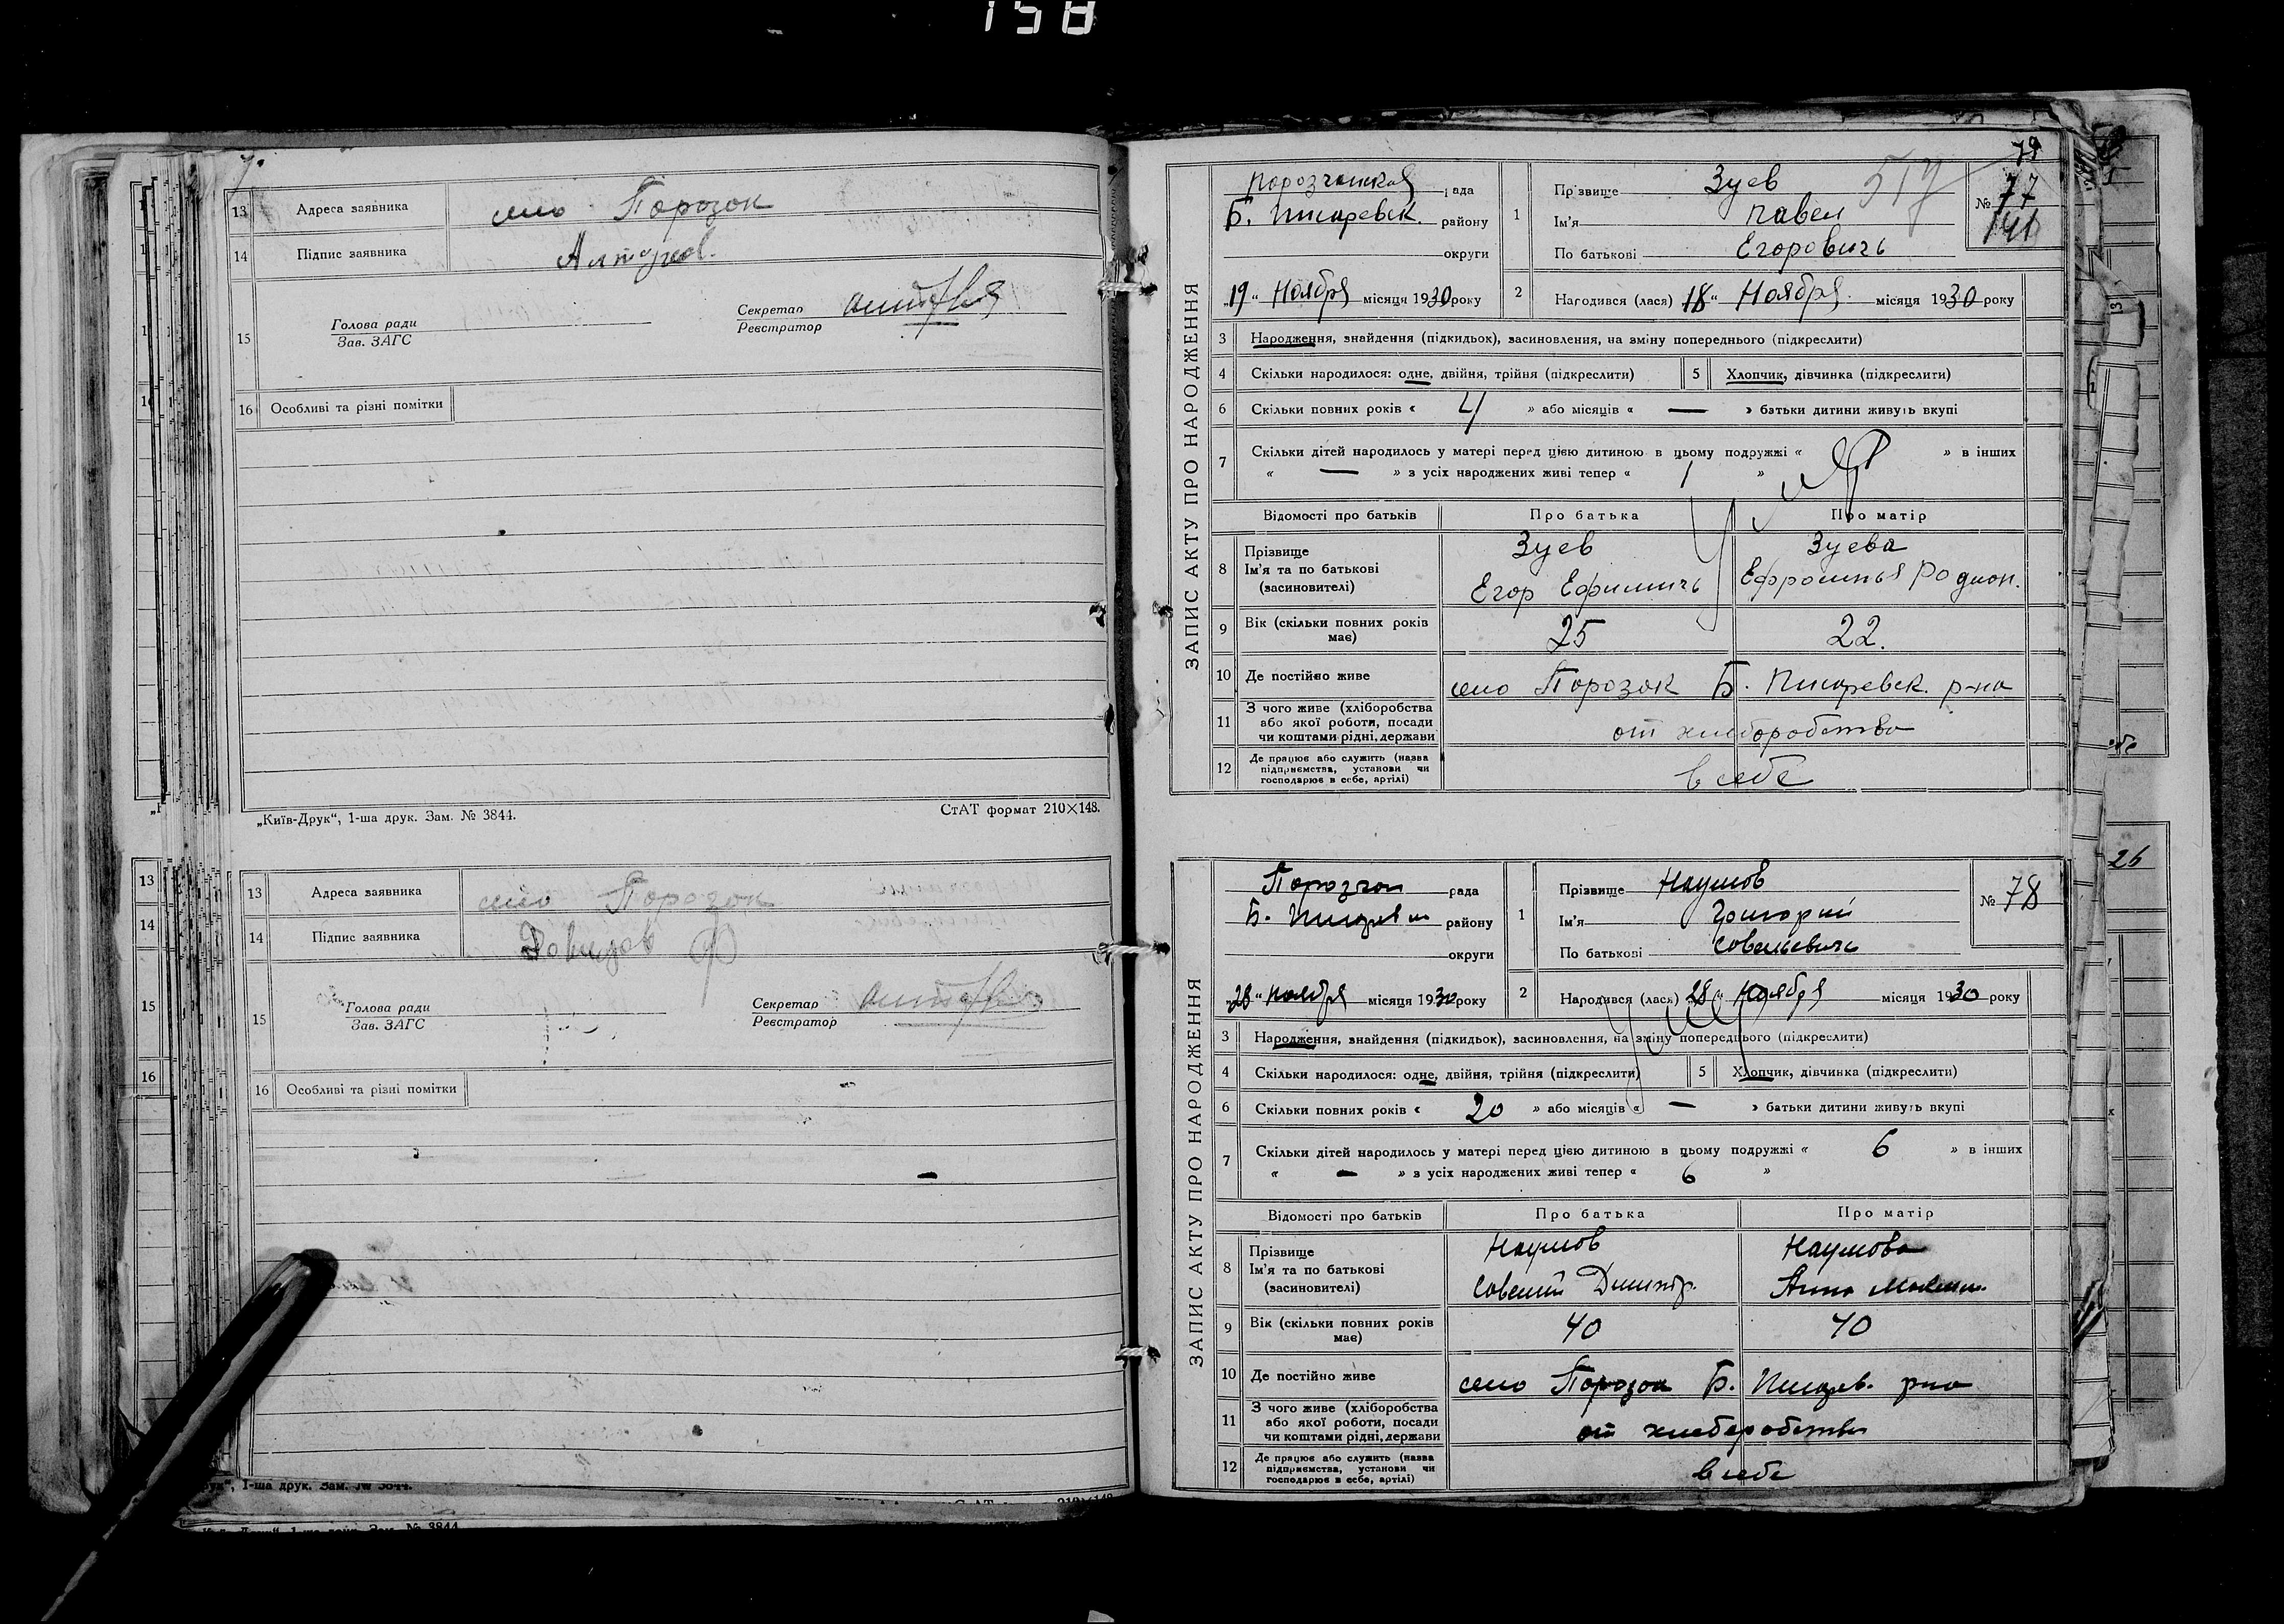 158
13 Адреса заявника село Порозок
14 Підпис заявника
15 Голова ради
Зав. ЗАГС
Секретар
Реєстратор
16 Особливі та різні помітки
„Київ-Друк“, 1-ша друк. Зам. № 3844.
СтАТ формат 210×148.
13 Адреса заявника село Порозок
14 Підпис заявника
15 Голова ради
Зав. ЗАГС
Секретар
Реєстратор
16 Особливі та різні помітки
79
ЗАПИС АКТУ ПРО НАРОДЖЕННЯ
рада
Б. Писаревск. району
округи
„19“ Ноября місяця 1930 року
1 Прізвище Зуев
Ім'я Павел
По батькові Егоровичь
№ 77
141
2 Народився (лася) 18“ Ноября місяця 1930 року
3 Народження, знайдення (підкидьок), засиновлення, на зміну попереднього (підкреслити)
4 Скільки народилося: одне, двійня, трійня (підкреслити) 5 Хлопчик, дівчинка (підкреслити)
6 Скільки повних років « 4 » або місяців « — » батьки дитини живуть вкупі
7 Скільки дітей народилось у матері перед цією дитиною в цьому подружжі « » в інших
« — » з усіх народжених живі тепер « 1 »
Відомості про батьків Про батька Про матір
8 Прізвище Зуев Зуева
Ім'я та по батькові
(засиновителі) Егор Ефимичь Ефросинья Родион.
9 Вік (скільки повних років має) 25 22.
10 Де постійно живе село Порозок Б. Писаревск. р-на
11 З чого живе (хліборобства
або якої роботи, посади
чи коштами рідні, держави от хлеборобства
12 Де працює або служить (назва
підприємства, установи чи
господарює в себе, артілі) в себе
ЗАПИС АКТУ ПРО НАРОДЖЕННЯ
рада
Б. району
округи
„28“ ноября місяця 1930 року
1 Прізвище Наумов
Ім'я Григорий
По батькові Савельевичь
№ 78
2 Народився (лася) 28“ Ноября місяця 1930 року
3 Народження, знайдення (підкидьок), засиновлення, на зміну попереднього (підкреслити)
4 Скільки народилося: одне, двійня, трійня (підкреслити) 5 Хлопчик, дівчинка (підкреслити)
6 Скільки повних років « 20 » або місяців « — » батьки дитини живуть вкупі
7 Скільки дітей народилось у матері перед цією дитиною в цьому подружжі « 6 » в інших
« — » з усіх народжених живі тепер « 6 »
Відомості про батьків Про батька Про матір
8 Прізвище Наумов Наумова
Ім'я та по батькові
(засиновителі) Савелий Дмитр. Анна
9 Вік (скільки повних років має) 40 40
10 Де постійно живе село Порозок Б. Писарев. рна
11 З чого живе (хліборобства
або якої роботи, посади
чи коштами рідні, держави от хлеборобства
12 Де працює або служить (назва
підприємства, установи чи
господарює в себе, артілі) в себе
26